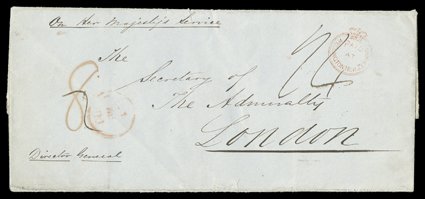 On Her Majesty's Service
The
Secretary of
The Admiralty
London
Director General
8
2